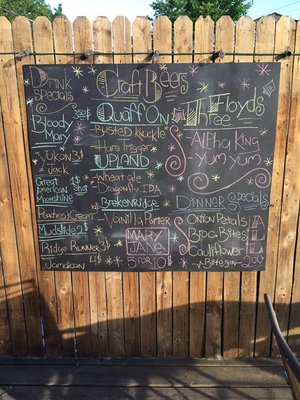 Drink
Specials
Bloody
Mary
Yukon 3$
Jack
Great
American
Moonshine
Peaches & Cream
Mudslide 2$
Ridge Runner 3$
Jamaican 4$
Craft Beers
Quaff On
- Busted Knuckle
- Hare Trigger
UPLAND
- Wheat ole
- Dragonfly IPA
Brekenridge
- Vanilla Porter
MARY
JANE
5 for 10$
Three Floyds
- Alpha King
- Yum Yum
Dinner Specials
Onion Petals
Broc. Bites
Cauliflower
- Bites
2.00